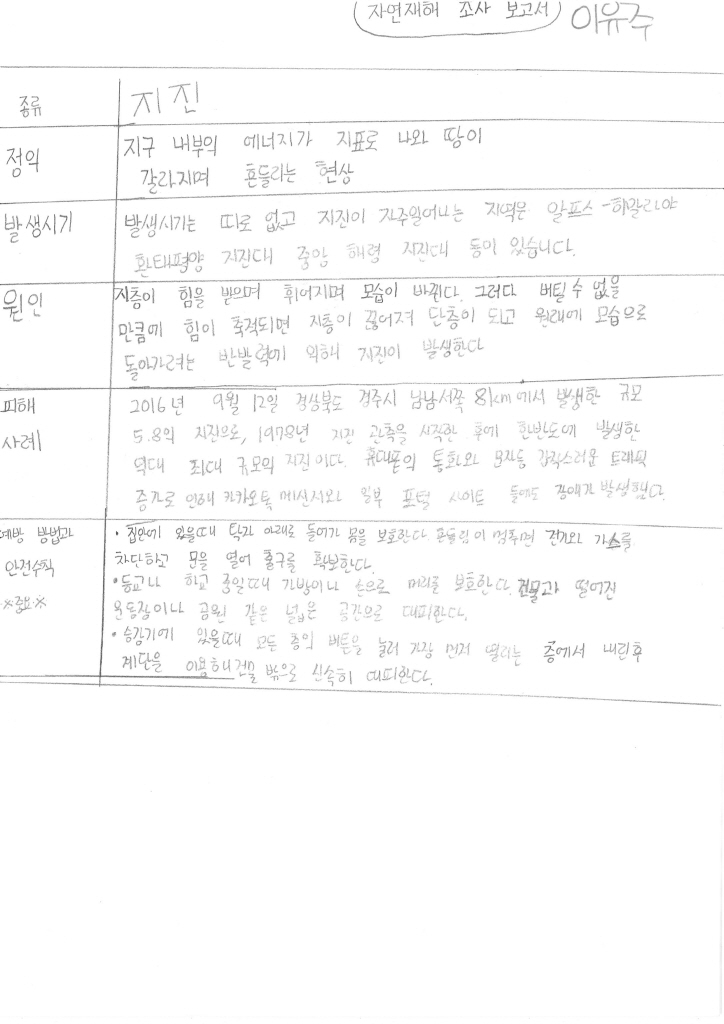 자연재해 조사 보고서 이유주
종류
지진
정의
지구 내부의 에너지가 지표로 나와 땅이
갈라지며 흔들리는 현상
발생시기
발생시기는 따로 없고 지진이 자주일어나는 지역은 알프스-히말라야
환태평양 지진대 중앙 해령 지진대 등이 있습니다.
원인
지층이 힘을 받으며 휘어지며 모습이 바뀐다. 그러다 버틸 수 없을
만큼에 힘이 축적되면 지층이 끊어져 단층이 되고 원래에 모습으로
돌아가려는 반발력에 의해 지진이 발생한다
피해
사례
2016년 9월 12일 경상북도 경주시 남남서쪽 8km에서 발생한 규모
5.8의 지진으로, 1978년 지진 관측을 시작한 후에 한반도에 발생한
역대 최대 규모의 지진이다. 휴대폰의 통화와 문자등 갑작스러운 트래픽
증가로 인해 카카오톡 메신저와 일부 포털 사이트 들에도 장애가 발생했다.
예방 방법과
안전수칙
※중요※
· 집안에 있을때 탁자 아래로 들어가 몸을 보호한다. 흔들림이 멈추면 전기와 가스를
차단하고 문을 열어 출구를 확보한다.
· 등교나 하교 중일때 가방이나 손으로 머리를 보호한다. 건물과 떨어진
운동장이나 공원 같은 넓은 공간으로 대피한다.
· 승강기에 있을때 모든 층의 버튼을 눌러 가장 먼저 열리는 층에서 내린후
계단을 이용해 건물 밖으로 신속히 대피한다.